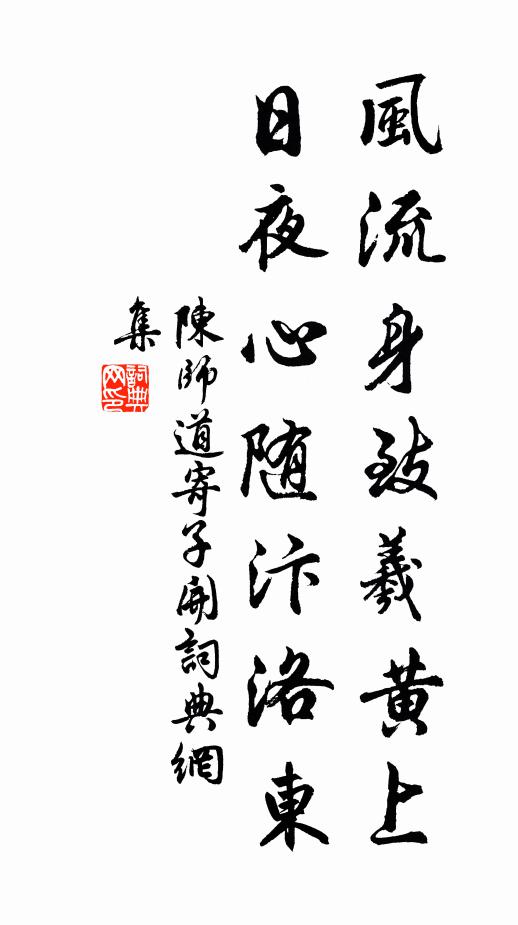 風流身致羲黃上
日夜心隨汴洛東
陳師道寄子開詞典網
集
詞典
网印